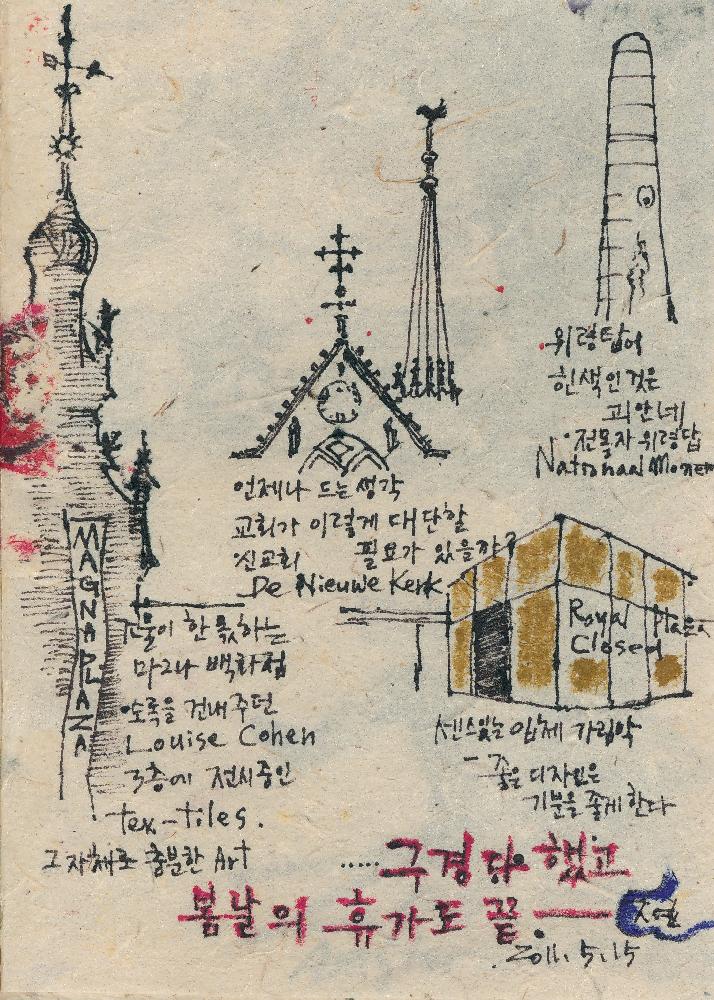 위령탑이
흰색인 것은
괴안네
전몰자 위령탑
Nationaal Monem
언제나 드는 생각
교회가 이렇게 대단할
신교회 필요가 있을까?
De Nieuwe Kerk
MAGNA PLAZA
건물이 한 몫 하는
마그나 백화점
소록을 건내주던
Louise Cohen
3층에 전시중인
tex-tiles.
그 자체로 충분한 Art
Royal Plaza
Closed
센스있는 입체 가림막
좋은 디자인은
기분을 좋게 한다
.....구경 다 했고
봄날의 휴가도 끝
2011.5.15